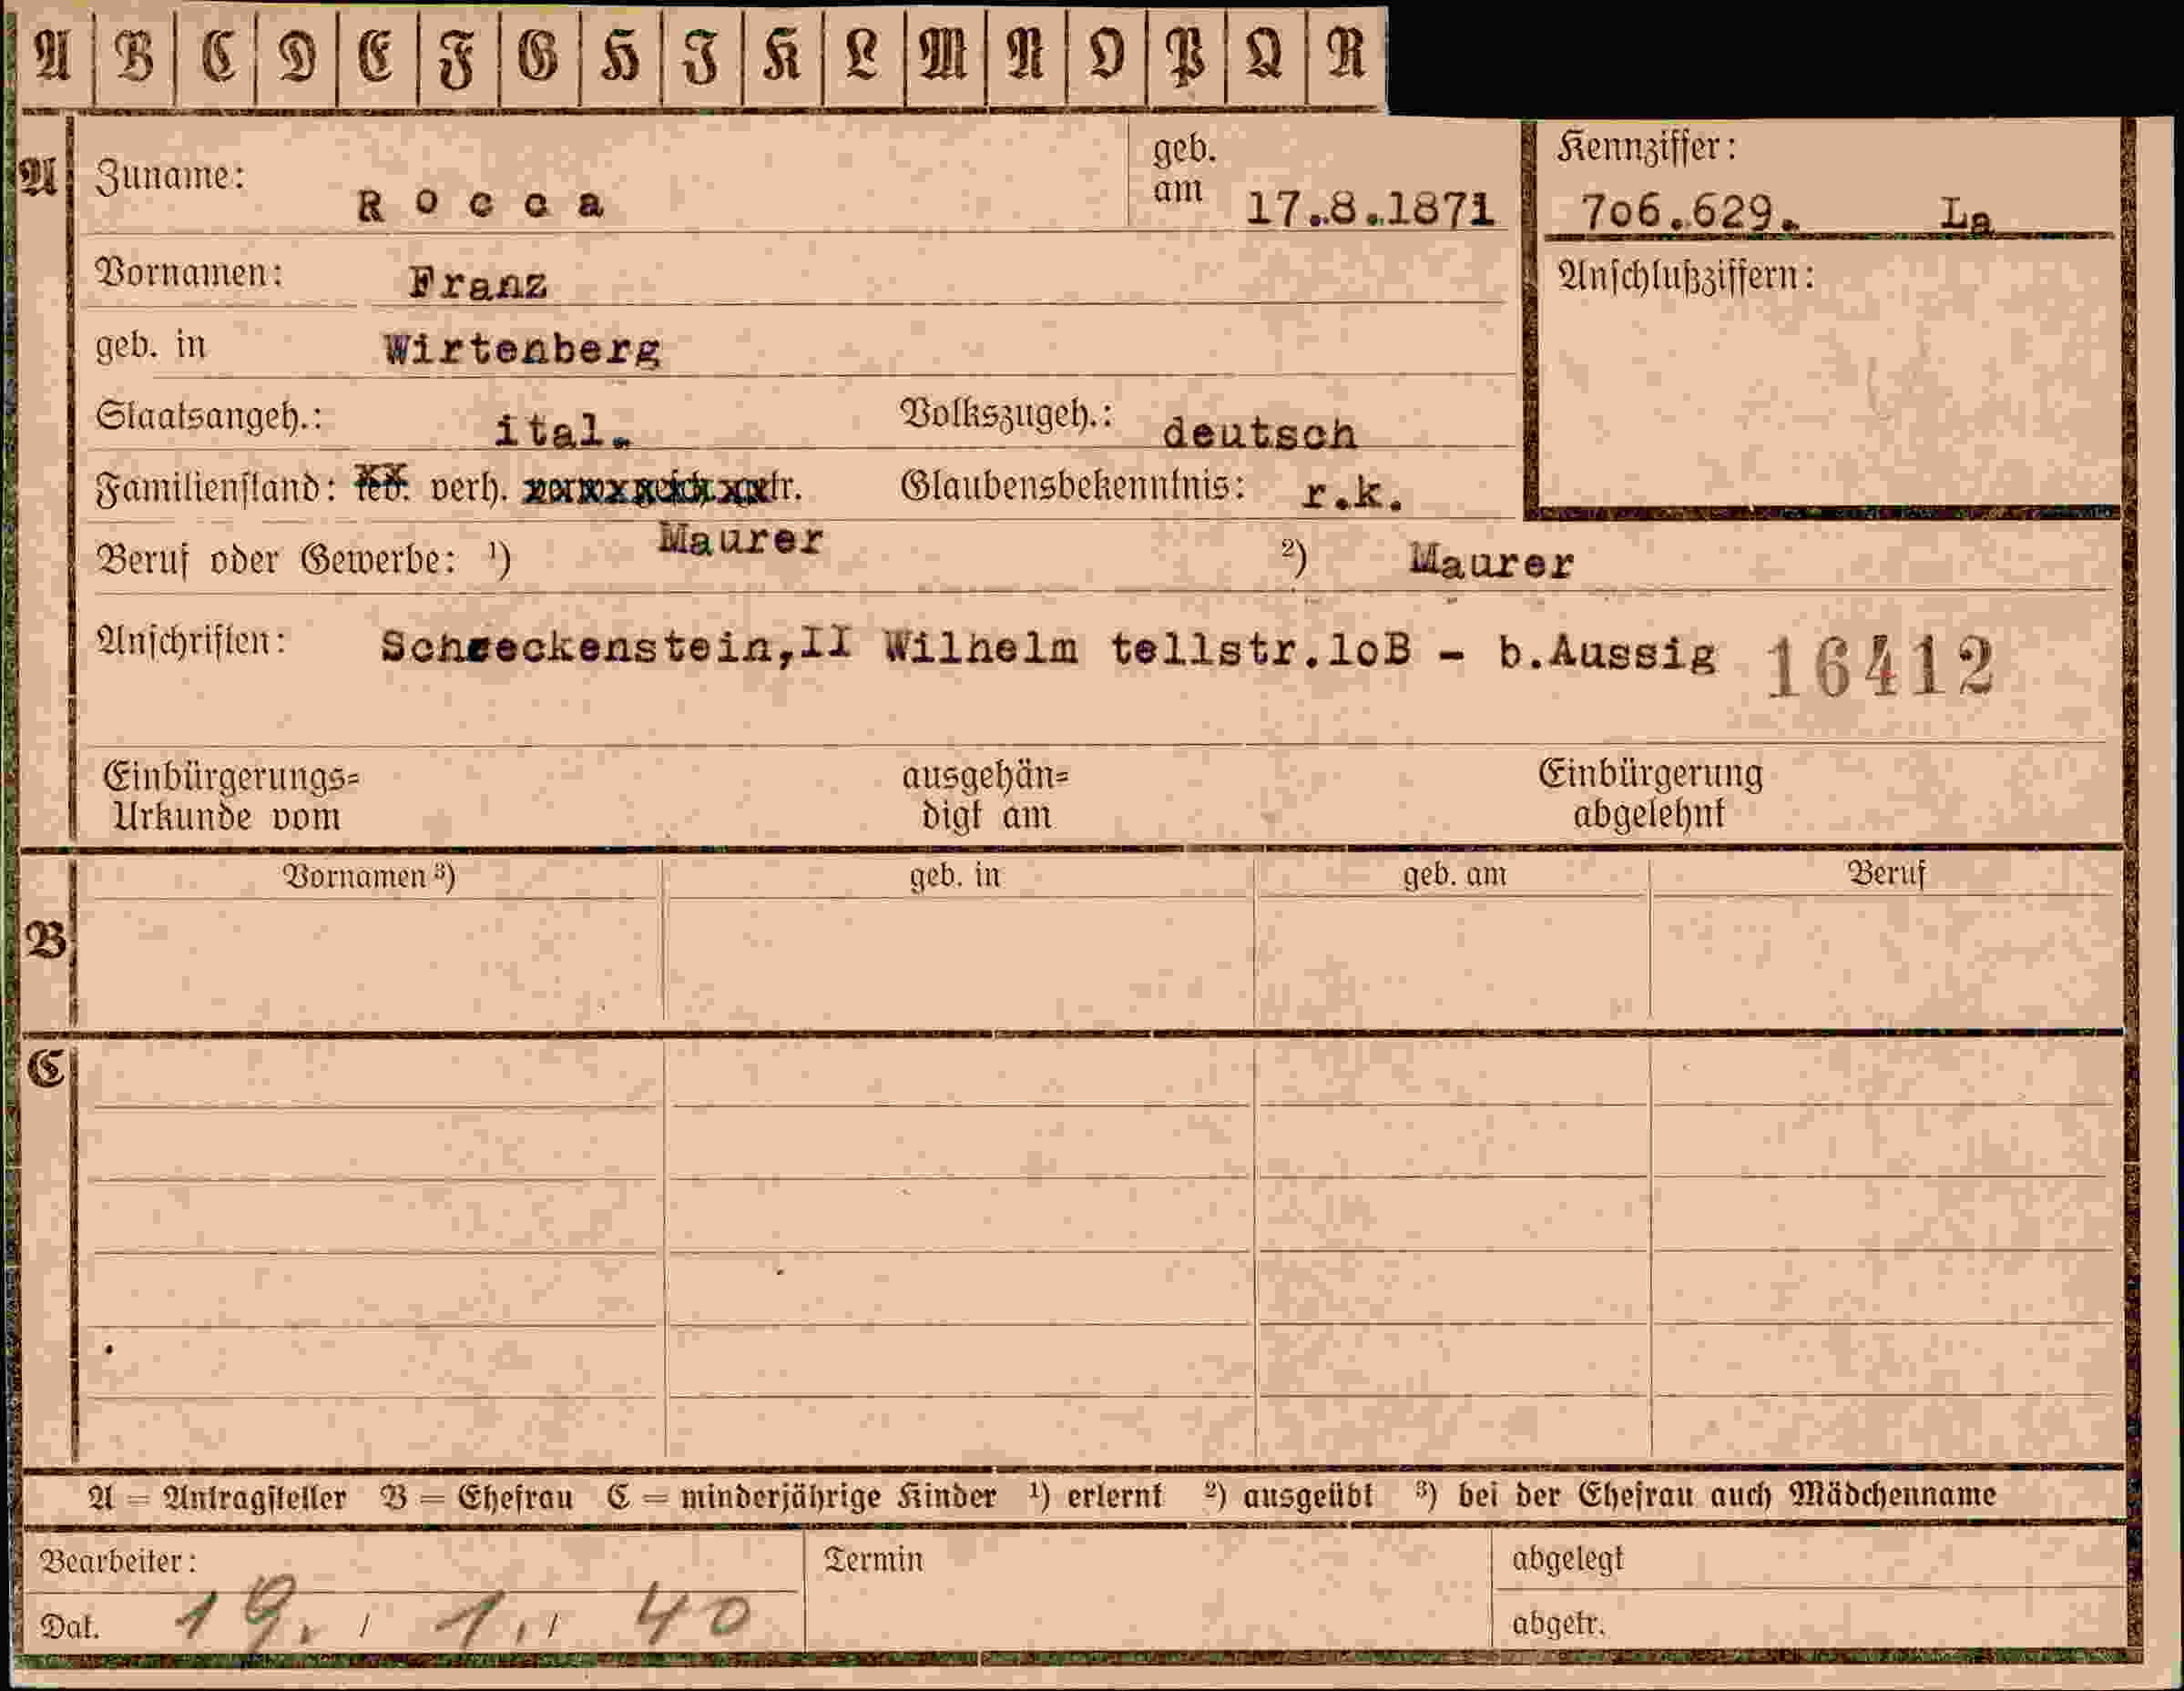 A B C D E F G H I K L M N O P Q R
A Zuname: Rocca geb. am 17.8.1871 Kennziffer: 7o6.629. La
Vornamen: Franz Anschlußziffern:
geb. in Wirtenberg
Staatsangeh.: ital. Volkszugeh.: deutsch
Familienstand: led. verh. tr. Glaubensbekenntnis: r.k.
Beruf oder Gewerbe: ¹) Maurer ²) Maurer
Anschriften: Schreckenstein,II Wilhelm tellstr.loB - b.Aussig 16412
Einbürgerungs= ausgehän= Einbürgerung
Urkunde vom digt am abgelehnt
Vornamen ³) geb. in geb. am Beruf
B
C
A = Antragsteller B = Ehefrau C = minderjährige Kinder ¹) erlernt ²) ausgeübt ³) bei der Ehefrau auch Mädchenname
Bearbeiter: Termin abgelegt
Dat. 19. / 1. / 40 abgetr.